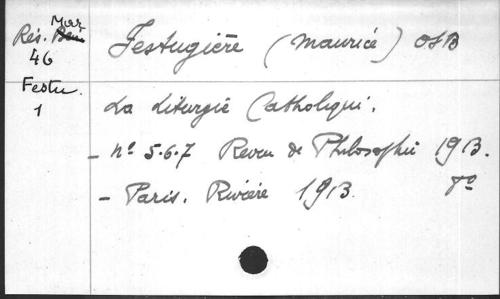 Mar
Rés.
46
Festu.
1
Festugière (Maurice) OSB
La Liturgie Catholique.
- nº 5.6.7 Revue de Philosophie 1913.
- Paris. Rivière 1913. 8º